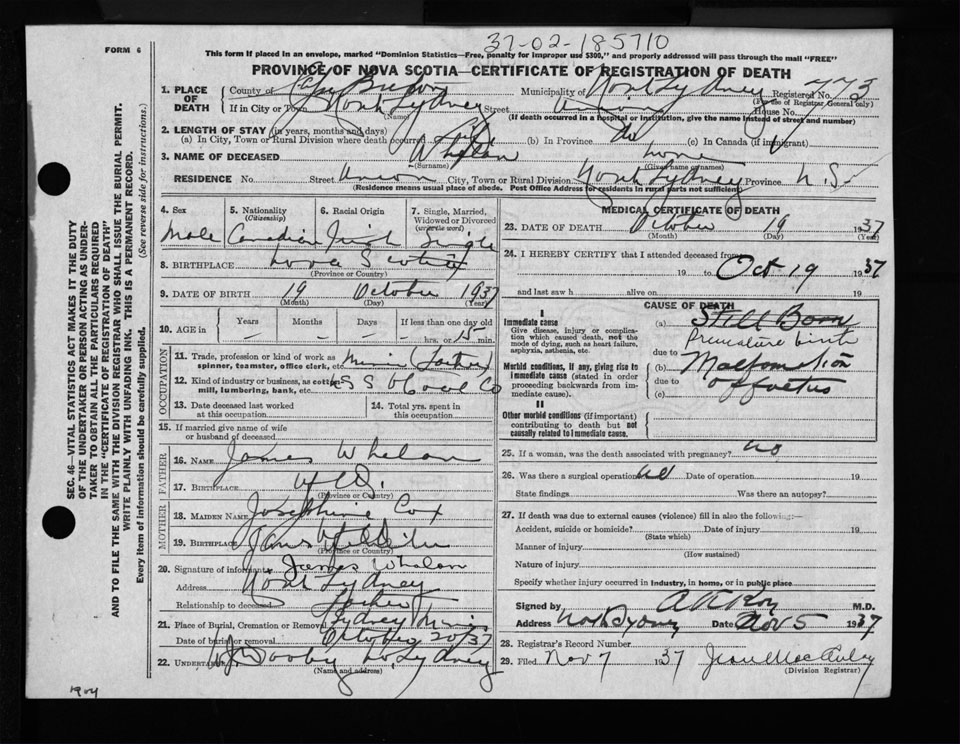 37-02-185710
FORM 6
This form if placed in an envelope, marked "Dominion Statistics—Free, penalty for improper use $300," and properly addressed will pass through the mail "FREE"
PROVINCE OF NOVA SCOTIA—CERTIFICATE OF REGISTRATION OF DEATH
SEC. 46—VITAL STATISTICS ACT MAKES IT THE DUTY
OF THE UNDERTAKER OR PERSON ACTING AS UNDER-
TAKER TO OBTAIN ALL THE PARTICULARS REQUIRED
IN THE "CERTIFICATE OF REGISTRATION OF DEATH"
AND TO FILE THE SAME WITH THE DIVISION REGISTRAR WHO SHALL ISSUE THE BURIAL PERMIT.
WRITE PLAINLY WITH UNFADING INK. THIS IS A PERMANENT RECORD.
Every item of information should be carefully supplied. (See reverse side for instructions.)
1. PLACE OF DEATH County of Cape Breton Municipality of North Sydney Registered No. 773
(For use of Registrar General only)
If in City or Town North Sydney Street Union House No.
(Name) (If death occurred in a hospital or institution, give the name instead of street and number)
2. LENGTH OF STAY (in years, months and days)
(a) In City, Town or Rural Division where death occurred (b) In Province (c) In Canada (if immigrant)
3. NAME OF DECEASED Whelan
(Surname) (Given surnames)
RESIDENCE No. Street Union City, Town or Rural Division North Sydney Province N.S.
(Residence means usual place of abode. Post Office Address for residents in rural parts not sufficient)
4. Sex Male
5. Nationality (Citizenship) Canadian
6. Racial Origin Irish
7. Single, Married, Widowed or Divorced (write the word) Single
8. BIRTHPLACE Nova Scotia
(Province or Country)
9. DATE OF BIRTH 19 October 1937
(Month) (Day) (Year)
10. AGE in Years Months Days If less than one day old
hrs. or 15 min.
OCCUPATION
11. Trade, profession or kind of work as spinner, teamster, office clerk, etc. Miner (Father)
12. Kind of industry or business, as cotton mill, lumbering, bank, etc. Coal Co
13. Date deceased last worked at this occupation
14. Total yrs. spent in this occupation
15. If married give name of wife or husband of deceased
FATHER
16. NAME James Whelan
17. BIRTHPLACE Nfld.
(Province or Country)
MOTHER
18. MAIDEN NAME Josephine Cox
19. BIRTHPLACE
(Province or Country)
20. Signature of informant James Whelan
Address North Sydney
Relationship to deceased Father
21. Place of Burial, Cremation or Removal Sydney Mines
Date of burial or removal October 20/37
22. UNDERTAKER Dooley N. Sydney
(Name and address)
MEDICAL CERTIFICATE OF DEATH
23. DATE OF DEATH October 19 1937
(Month) (Day) (Year)
24. I HEREBY CERTIFY that I attended deceased from
19 to Oct 19 1937
and last saw h alive on 19
CAUSE OF DEATH
I
Immediate cause
Give disease, injury or complication which caused death, not the mode of dying, such as heart failure, asphyxia, asthenia, etc.
(a) Still Born
Premature birth
due to
Morbid conditions, if any, giving rise to immediate cause (stated in order proceeding backwards from immediate cause).
(b) Malformation
due to of foetus
(c)
II
Other morbid conditions (if important) contributing to death but not causally related to immediate cause.
25. If a woman, was the death associated with pregnancy? no
26. Was there a surgical operation? Date of operation 19
State findings Was there an autopsy?
27. If death was due to external causes (violence) fill in also the following:—
Accident, suicide or homicide? Date of injury 19
(State which)
Manner of injury
(How sustained)
Nature of injury
Specify whether injury occurred in industry, in home, or in public place
Signed by M.D.
Address North Sydney Date Nov 5 1937
28. Registrar's Record Number
29. Filed Nov 7 1937
(Division Registrar)